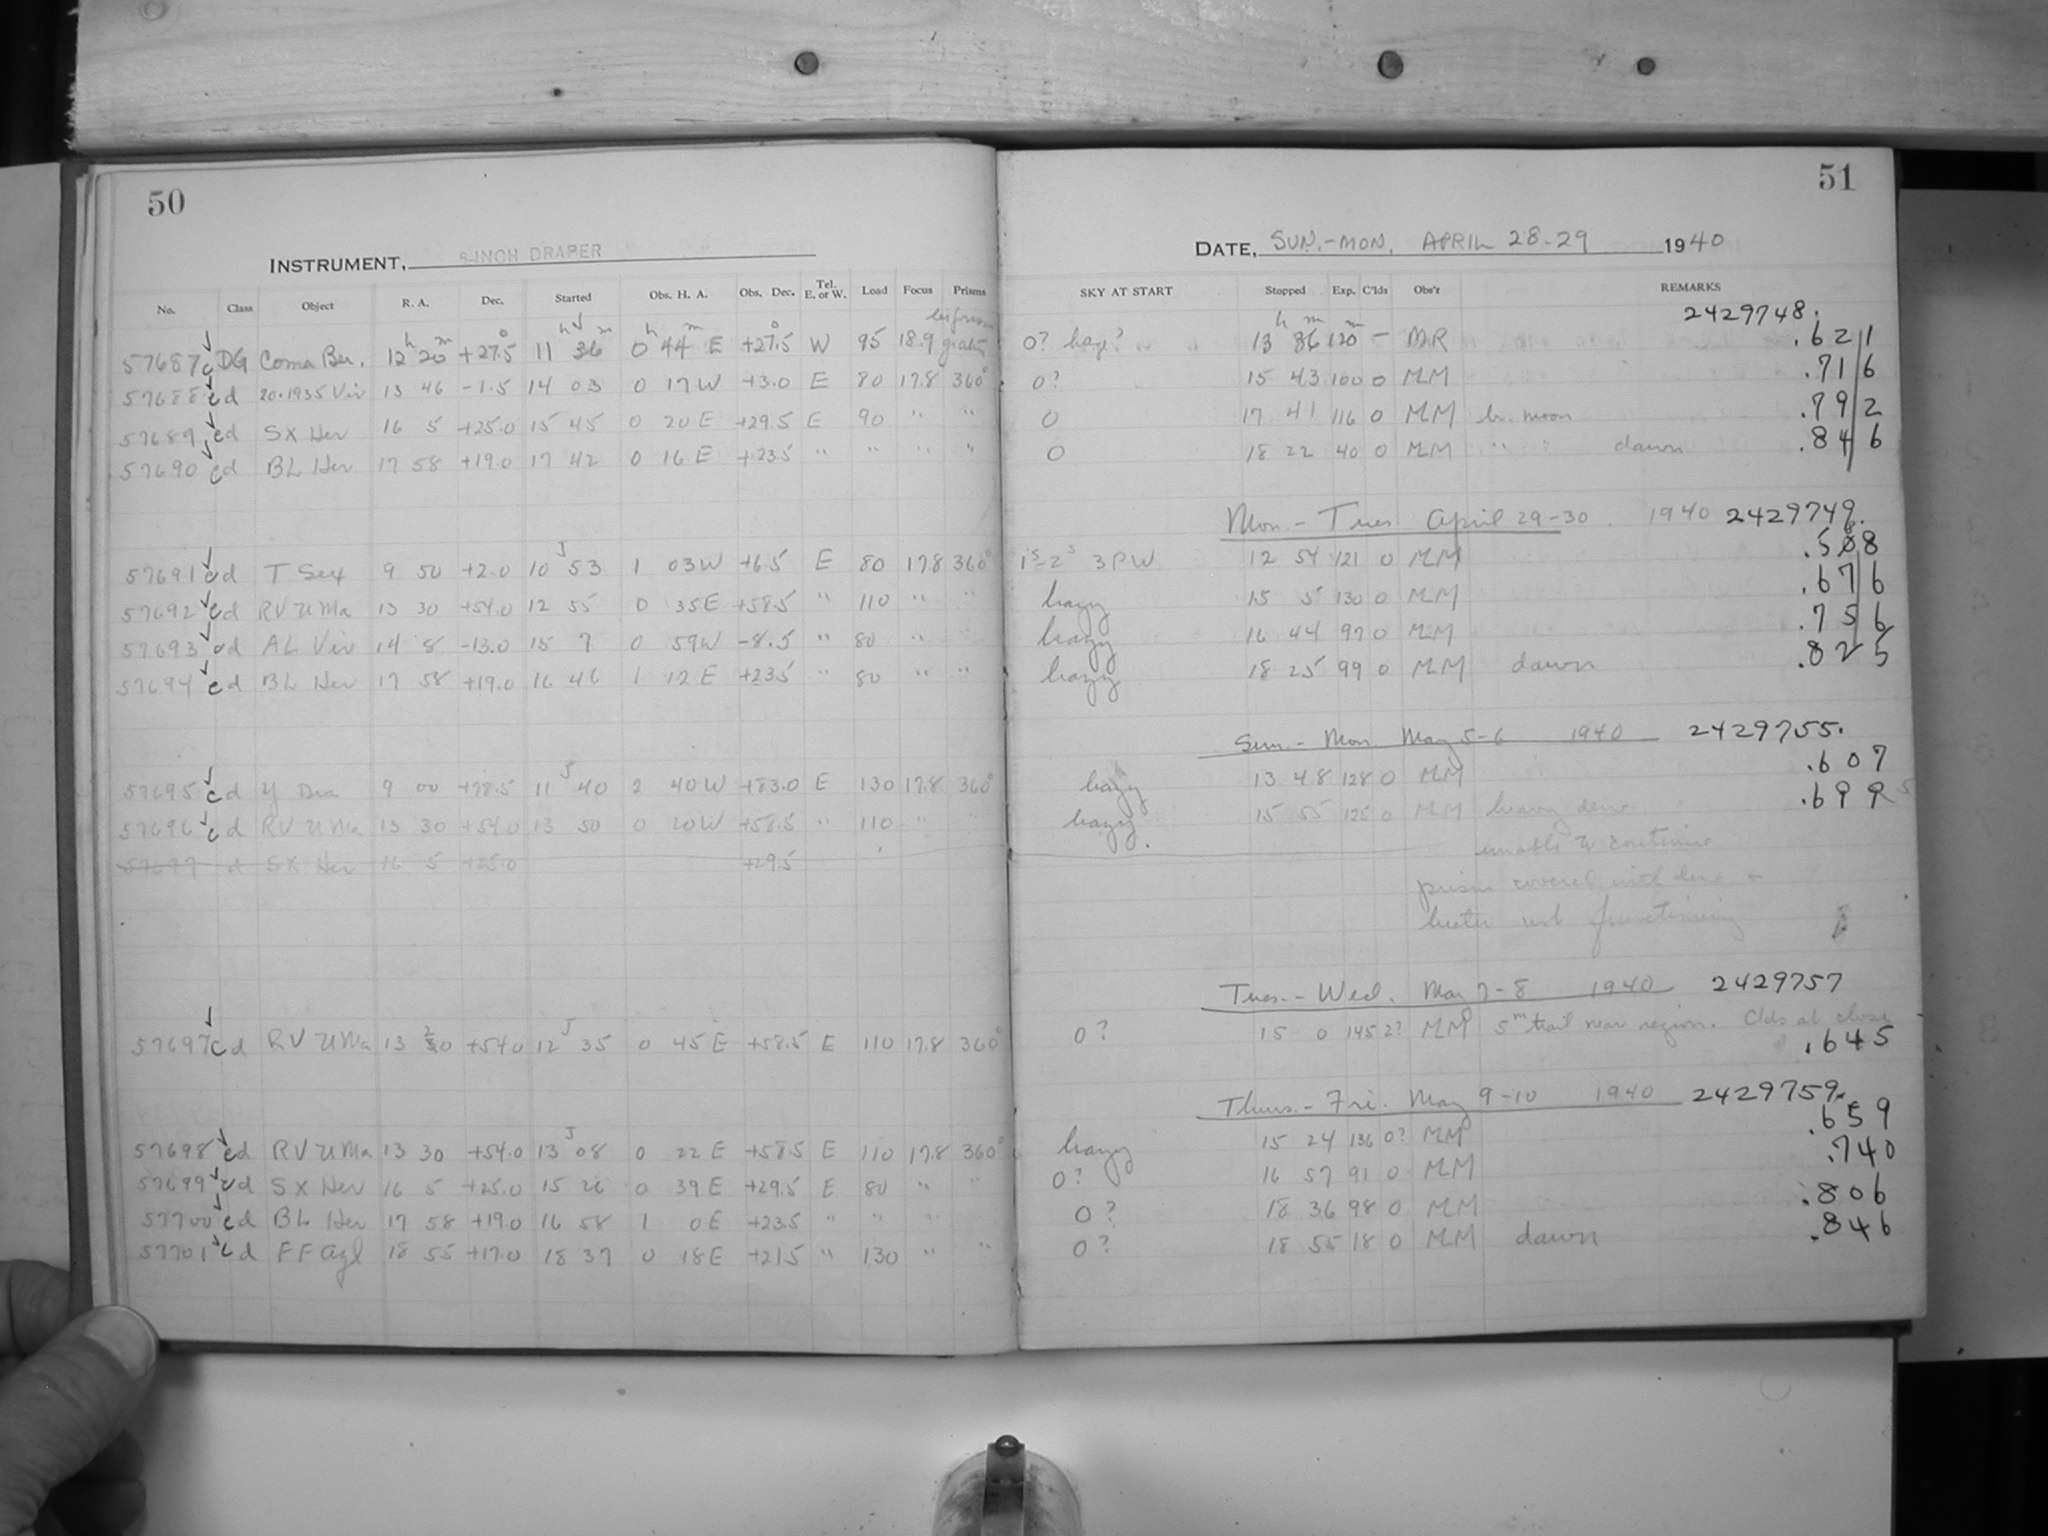 50
INSTRUMENT, 8-INCH DRAPER
No. Class Object R. A. Dec. Started Obs. H. A. Obs. Dec. Tel. E. or W. Load Focus Prisms
57687 c DG Coma Ber. 12 h 20 m +27.5 11 h 36 m 0 h 44 m E +27.5 W 95 18.9
57688 c d 20.1935 Vir 13 46 -1.5 14 03 0 17 W +3.0 E 80 17.8 360°
57689 c d SX Her 16 5 +25.0 15 45 0 20 E +29.5 E 90 " "
57690 c d BL Her 17 58 +19.0 17 42 0 16 E +23.5 " " " "
57691 c d T Sex 9 50 +2.0 10 53 1 03 W +6.5 E 80 17.8 360°
57692 c d RV U Ma 13 30 +54.0 12 55 0 35 E +58.5 " 110 " "
57693 c d AL Vir 14 8 -13.0 15 7 0 59 W -8.5 " 80 " "
57694 c d BL Her 17 58 +19.0 16 46 1 12 E +23.5 " 80 " "
57695 c d Y Dra 9 00 +78.5 11 40 2 40 W +83.0 E 130 17.8 360°
57696 c d RV U Ma 13 30 +54.0 13 50 0 20 W +58.5 " 110 " "
57697 d SX Her 16 5 +25.0 +29.5
57697 c d RV U Ma 13 20 +54.0 12 35 0 45 E +58.5 E 110 17.8 360°
57698 c d RV U Ma 13 30 +54.0 13 08 0 22 E +58.5 E 110 17.8 360°
57699 c d SX Her 16 5 +25.0 15 26 0 39 E +29.5 E 80 " "
57700 c d BL Her 17 58 +19.0 16 58 1 0 E +23.5 " " "
57701 c d FF Aql 18 55 +17.0 18 37 0 18 E +21.5 " 130 " "
51
DATE, SUN.-MON. APRIL 28-29 1940
SKY AT START Stopped Exp. C'lds Obs'r REMARKS
2429748.
0? haze? 13 h 36 m 120 m - MR .621
0? 15 43 100 0 MM .716
0 17 41 116 0 MM br. moon .792
0 18 22 40 0 MM " " dawn .846
Mon.- Tues. April 29-30 1940 2429749.
1s-2s 3PW 12 54 121 0 MM
hazy 15 5 130 0 MM .676
hazy 16 44 97 0 MM .756
hazy 18 25 99 0 MM dawn .825
Sun.- Mon. May 5-6 1940 2429755.
hazy 13 48 128 0 MM .607
hazy. 15 55 125 0 MM heavy dew .699
unable to continue
prism covered with dew +
heater not functioning
Tues.- Wed. May 7-8 1940 2429757
0? 15 0 145 2? MM 5m trail near region. Clds at close
.645
Thurs.- Fri. May 9-10 1940 2429759.
hazy 15 24 136 0? MM .659
0? 16 57 91 0 MM .740
0? 18 36 98 0 MM .806
0? 18 55 18 0 MM dawn .846